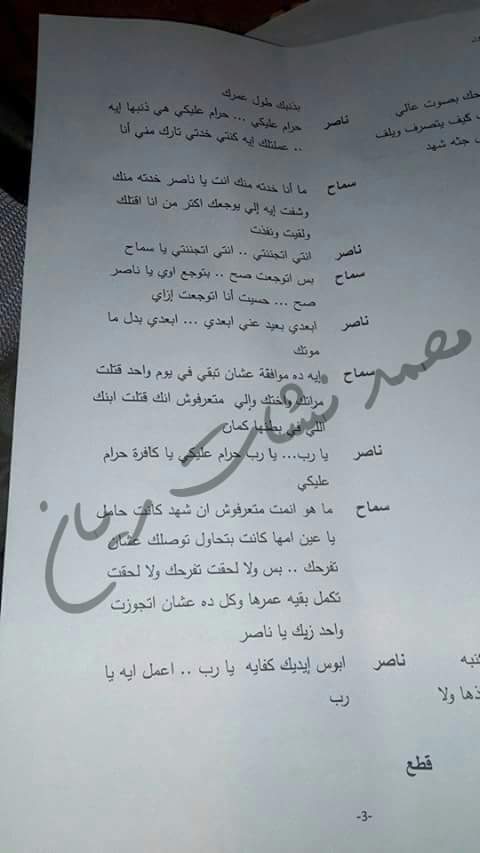 بذنبك طول عمرك
ناصر حرام عليكي ... حرام عليكي هي ذنبها إيه
.. عملتلك إيه كنتي خدتي تارك مني أنا
حك بصوت عالي
كيف يتصرف ويلف
جثه شهد
سماح ما أنا خدته منك انت يا ناصر خدته منك
وشفت إيه إلي يوجعك اكتر من انا اقتلك
ولقيت ونفذت
ناصر انتي اتجننتي .. انتي اتجننتي يا سماح
سماح بس اتوجعت صح .. بتوجع اوي يا ناصر
صح ... حسيت أنا اتوجعت إزاي
ناصر ابعدي بعيد عني ابعدي ... ابعدي بدل ما
موتك
سماح وإيه ده موافقة عشان تبقي في يوم واحد قتلت
مراتك واختك وإلي متعرفوش انك قتلت ابنك
اللي في بطنها كمان
ناصر يا رب... يا رب حرام عليكي يا كافرة حرام
عليكي
سماح ما هو انمت متعرفوش ان شهد كانت حامل
يا عين امها كانت بتحاول توصلك عشان
تفرحك .. بس ولا لحقت تفرحك ولا لحقت
تكمل بقيه عمرها وكل ده عشان اتجوزت
واحد زيك يا ناصر
ناصر ابوس إيديك كفايه يا رب .. اعمل ايه يا
رب
كتبه
ذها ولا
قطع
-3-
محمد نشات ريحان